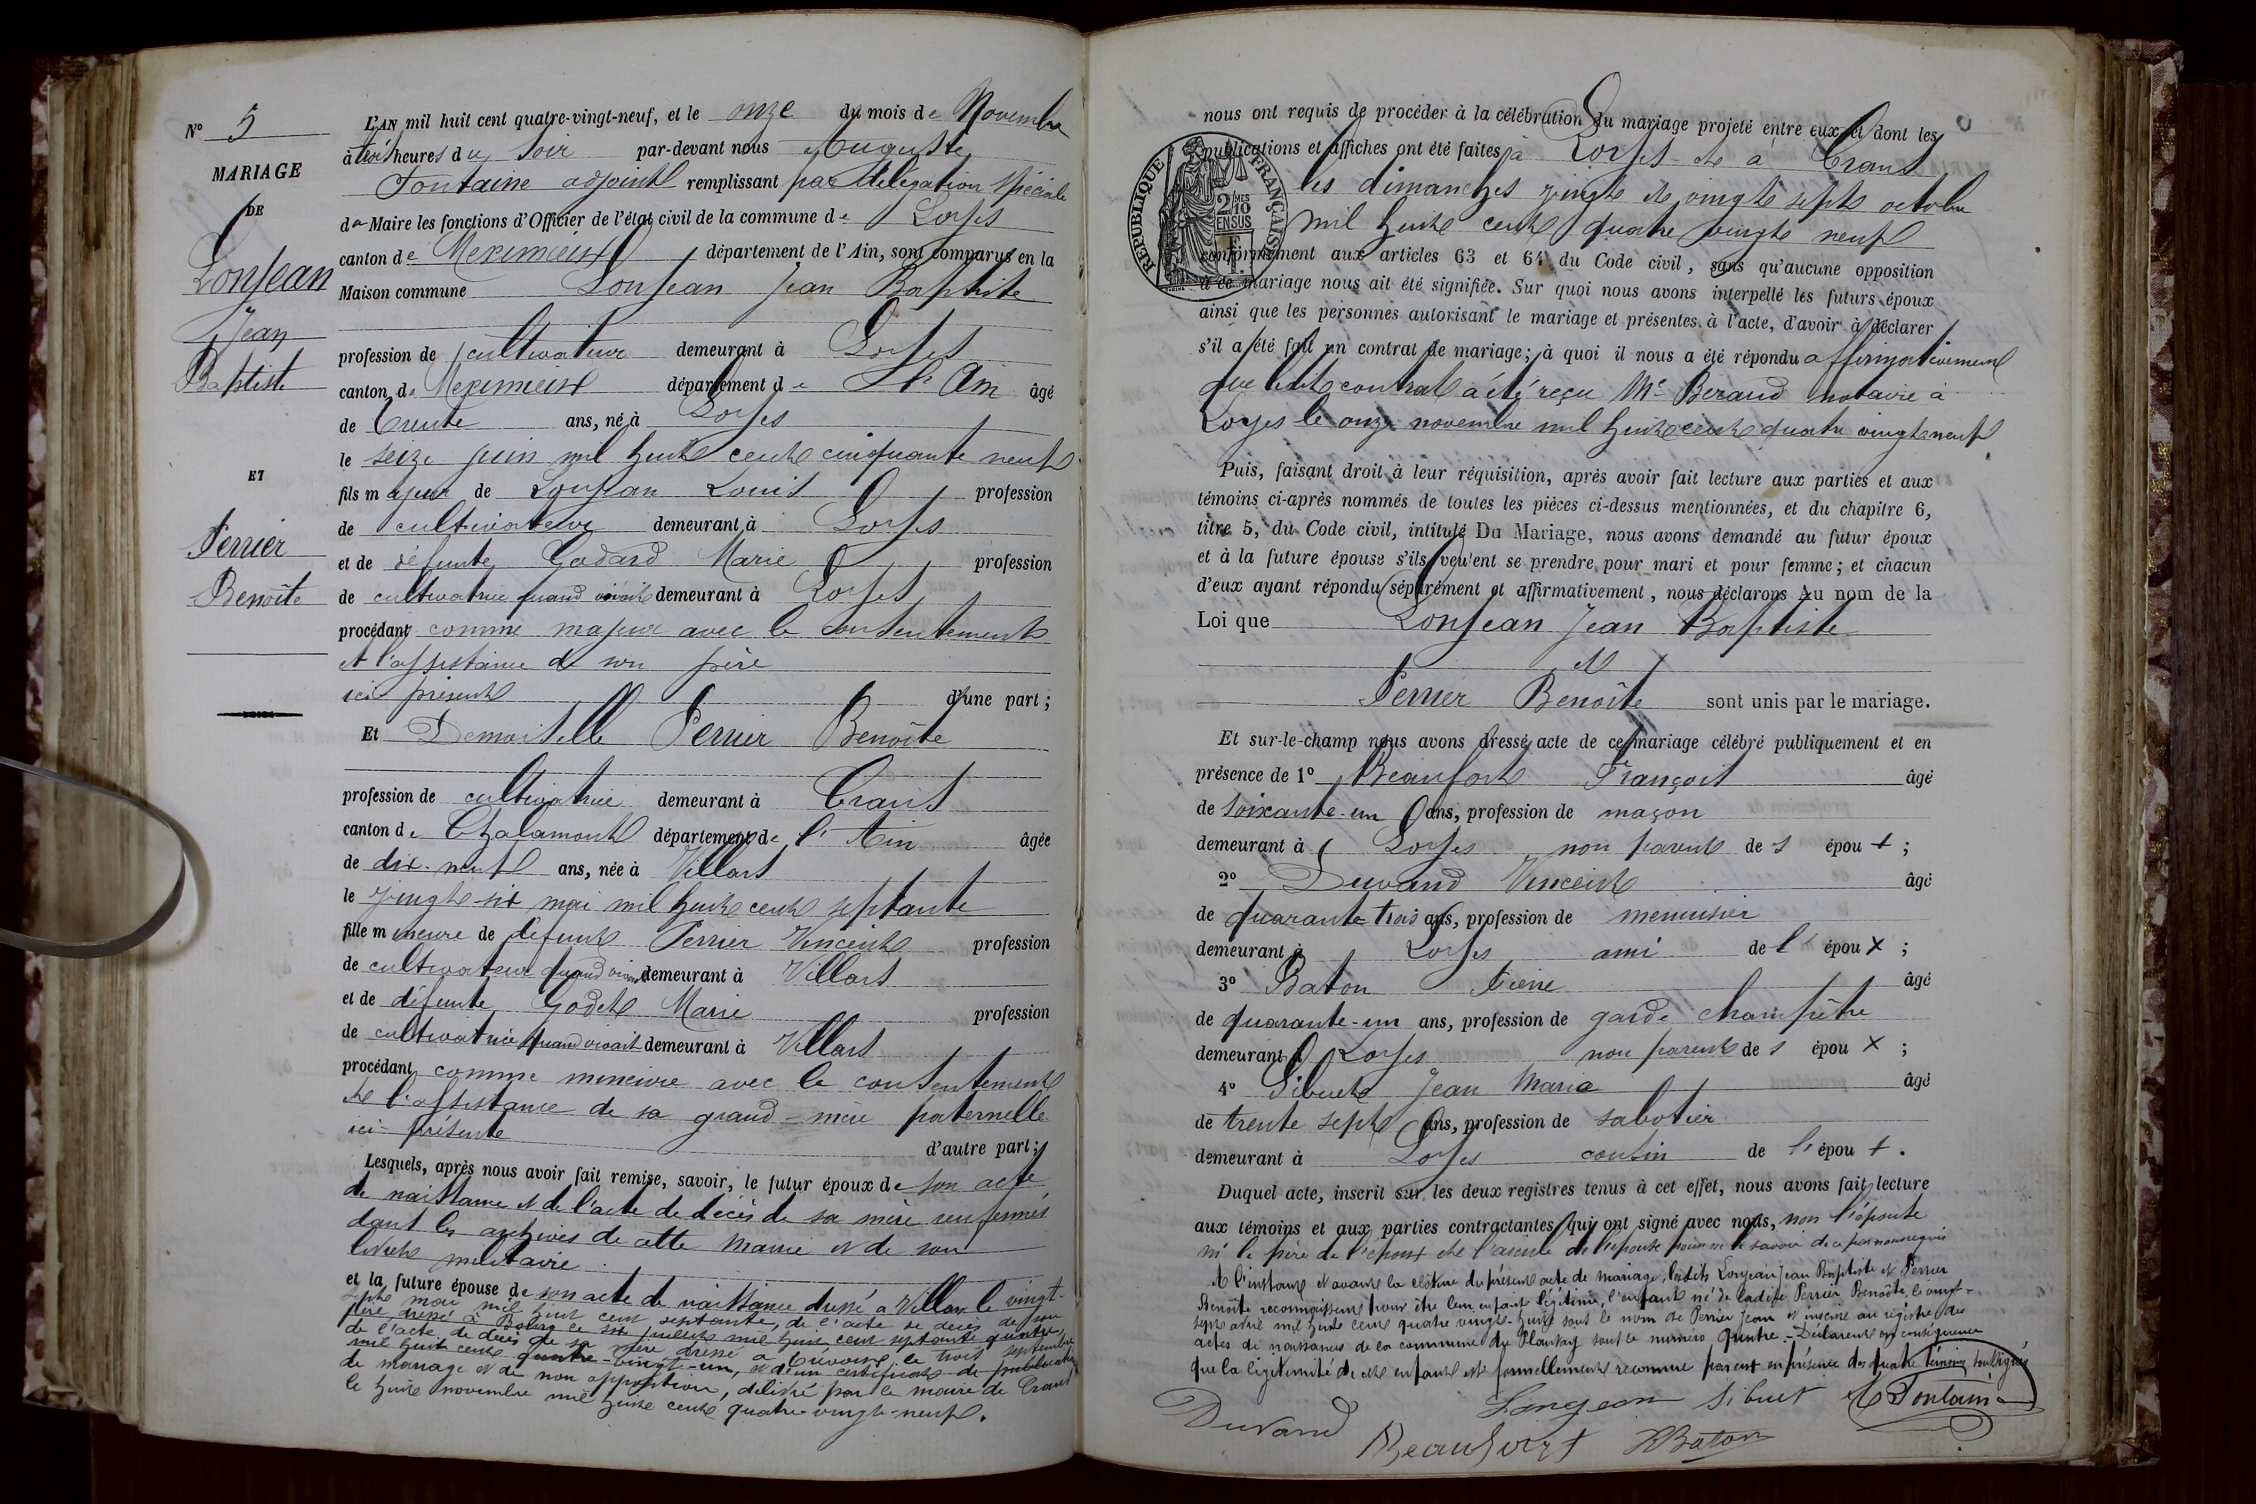 N° 5
MARIAGE
DE
Lonjean
Jean
Baptiste
ET
Perrier
Benoîte
L'AN mil huit cent quatre-vingt-neuf, et le onze du mois de Novembre
à trois heures du soir par-devant nous Auguste
Fontaine adjoint remplissant par délégation spéciale
du Maire les fonctions d'Officier de l'état civil de la commune de Loyes
canton de Meximieux département de l'Ain, sont comparus en la
Maison commune Lonjean Jean Baptiste
profession de cultivateur demeurant à Loyes
canton de Meximieux département de L'Ain âgé
de trente ans, né à Loyes
le seize juin mil huit cent cinquante neuf
fils majeur de Lonjean Louis profession
de cultivateur demeurant à Loyes
et de défunte Godard Marie profession
de cultivatrice quand vivait demeurant à Loyes
procédant comme majeur avec le consentement
et l'assistance de son père
ici présent d'une part ;
Et Demoiselle Perrier Benoîte
profession de cultivatrice demeurant à Crans
canton de Chalamont département de l'Ain âgée
de dix-neuf ans, née à Villars
le vingt-six mai mil huit cent septante
fille mineure de défunt Perrier Vincent profession
de cultivateur quand vivait demeurant à Villars
et de défunte Godet Marie profession
de cultivatrice quand vivait demeurant à Villars
procédant comme mineure avec le consentement
et l'assistance de sa grand-mère paternelle
ici présente d'autre part ;
Lesquels, après nous avoir fait remise, savoir, le futur époux de son acte
de naissance et de l'acte de décès de sa mère renfermés
dans les archives de cette Mairie et de son
livret militaire.
et la future épouse de son acte de naissance dressé à Villars le vingt-
sept mai mil huit cent septante, de l'acte de décès de son
père dressé à Bourg le six juillet mil huit cent septante quatre,
de l'acte de décès de sa mère dressé à Trévoux le trois septembre
mil huit cent quatre-vingt-un, et d'un certificat de publication
de mariage et de non opposition, délivré par le maire de Crans
le huit novembre mil huit cent quatre-vingt-neuf.
nous ont requis de procéder à la célébration du mariage projeté entre eux et dont les
publications et affiches ont été faites à Loyes et à Crans
les dimanches vingt et vingt sept octobre
mil huit cent quatre vingt neuf
conformément aux articles 63 et 64 du Code civil, sans qu'aucune opposition
à ce mariage nous ait été signifiée. Sur quoi nous avons interpellé les futurs époux
ainsi que les personnes autorisant le mariage et présentes à l'acte, d'avoir à déclarer
s'il a été fait un contrat de mariage ; à quoi il nous a été répondu affirmativement
que ledit contrat a été reçu Me Beraud notaire à
Loyes le onze novembre mil huit cent quatre vingt neuf
RÉPUBLIQUE FRANÇAISE
2 MES
10
EN SUS
1 F.
Puis, faisant droit à leur réquisition, après avoir fait lecture aux parties et aux
témoins ci-après nommés de toutes les pièces ci-dessus mentionnées, et du chapitre 6,
titre 5, du Code civil, intitulé Du Mariage, nous avons demandé au futur époux
et à la future épouse s'ils veulent se prendre pour mari et pour femme ; et chacun
d'eux ayant répondu séparément et affirmativement, nous déclarons Au nom de la
Loi que Lonjean Jean Baptiste
et
Perrier Benoîte sont unis par le mariage.
Et sur-le-champ nous avons dressé acte de ce mariage célébré publiquement et en
présence de 1° Beaufort François âgé
de soixante-un ans, profession de maçon
demeurant à Loyes non parent des époux ;
2° Duvand Vincent âgé
de quarante-trois ans, profession de menuisier
demeurant à Loyes ami de l'époux ;
3° Baton Pierre âgé
de quarante-un ans, profession de garde champêtre
demeurant à Loyes non parent des époux ;
4° Sibuet Jean Marie âgé
de trente sept ans, profession de sabotier
demeurant à Loyes cousin de l'époux.
Duquel acte, inscrit sur les deux registres tenus à cet effet, nous avons fait lecture
aux témoins et aux parties contractantes qui ont signé avec nous, non l'épouse
ni le père de l'époux et l'aïeule de l'épouse pour ne le savoir de ce par nous requis
A l'instant et avant la clôture du présent acte de mariage, lesdits Lonjean Jean Baptiste et Perrier
Benoîte reconnaissent pour être leur enfant légitime, l'enfant né de ladite Perrier Benoîte, le vingt-
sept avril mil huit cent quatre vingt-huit sous le nom de Perrier Jean et inscrit au registre des
actes de naissances de la commune du Plantay sous le numéro quatre. Déclarent en conséquence
que la légitimité de cet enfant est formellement reconnue par eux en présence des quatre témoins soussignés
Lonjean Sibuet A Fontaine
Duvand Beaufort Baton